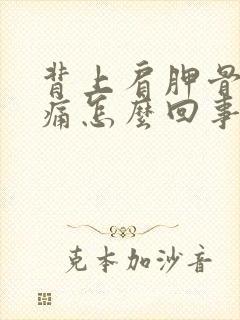 背上肩胛骨
痛怎麼回事
克本加沙音